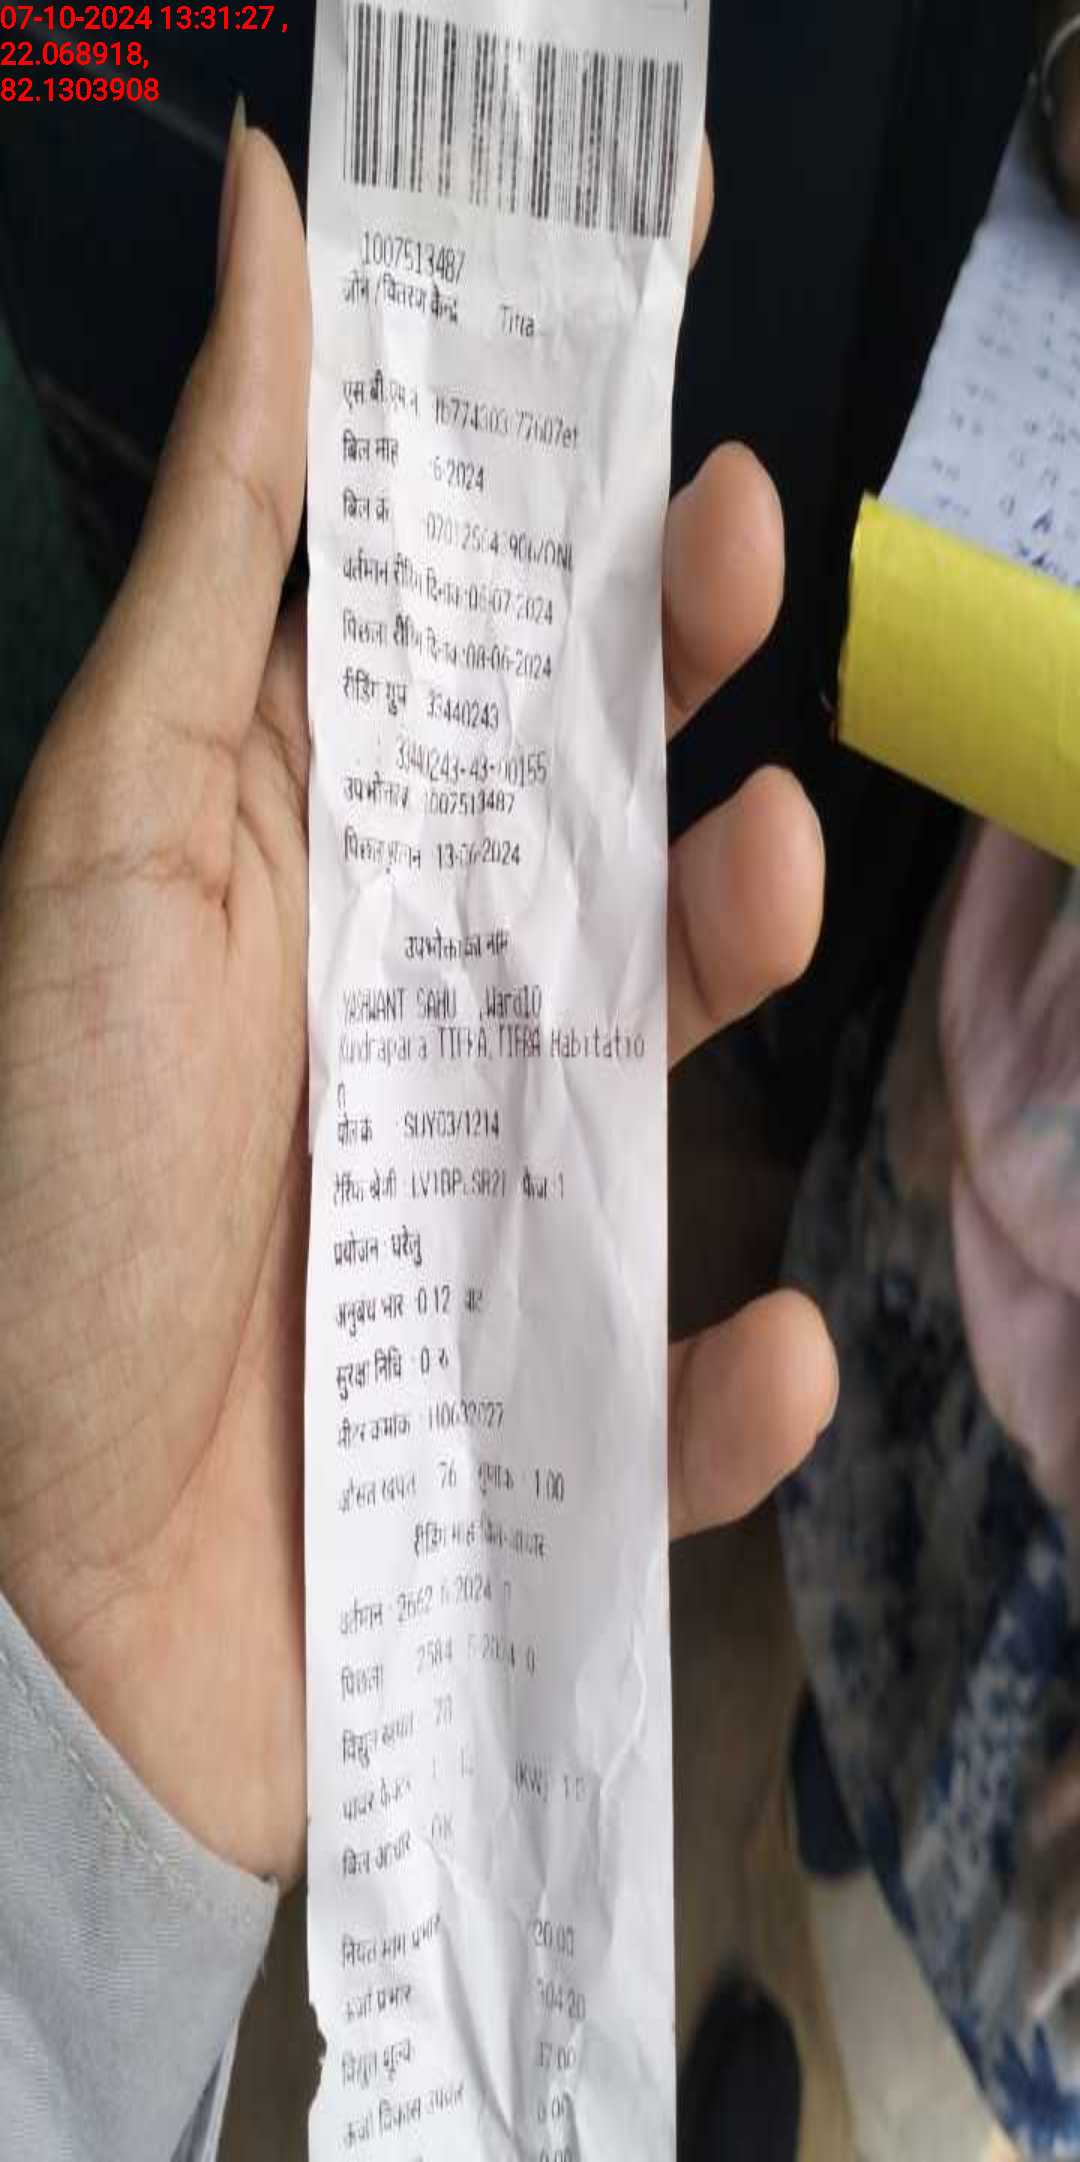 07-10-2024 13:31:27 ,
22.068918,
82.1303908
1007513487
जोन /वितरण केन्द्र Tifra
एस.बी.एम.न
बिल माह :6-2024
बिल क्र
वर्तमान रीडिंग दिनांक :08-07-2024
पिछला रीडिंग दिनांक :08-06-2024
रीडिंग ग्रुप 33440243
3340243-43-00155
उपभोक्ता क्र 1007513487
पिछला भुगतान 13-06-2024
उपभोक्ता का नाम
YASHWANT SAHU ,Ward10
Kundrapara TIFRA,TIFRA Habitatio
n
पोल क्र SUY03/1214
टैरिफ श्रेणी फेज :1
प्रयोजन : घरेलु
अनुबंध भार 0.12
सुरक्षा निधि : 0 रु
मीटर क्रमांक
औसत खपत 76 गुणांक : 1.00
रीडिंग माह बिल-आधार
वर्तमान : 2662 6-2024 0
पिछला 2584 5-2024 0
विद्युत खपत 78
पावर फैक्टर (KW)
बिल आधार OK
नियत मांग प्रभार 20.00
ऊर्जा प्रभार 304.20
विद्युत शुल्क
ऊर्जा विकास उपकर
0.00